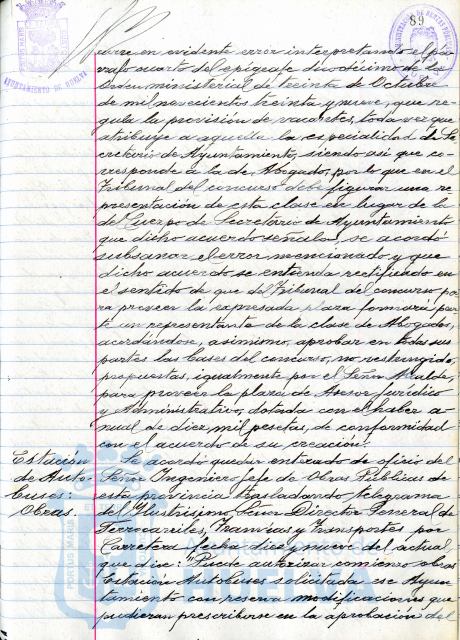 89
AYUNTAMIENTO DE HUELVA
curre en evidente error interpretando el pá-
rrafo cuarto del epígrafe duodécimo de la
Orden ministerial de treinta de Octubre
de mil novecientos treinta y nueve, que re-
gula la provisión de vacantes, toda vez que
atribuye a aquella la especialidad de Se-
cretario de Ayuntamiento, siendo así que co-
rresponde a la de Abogado, por lo que en el
Tribunal del concurso debe figurar una re-
presentación de esta clase en lugar de la
del Cuerpo de Secretario de Ayuntamiento
que dicho acuerdo señala, se acordó
subsanar el error mencionado y que
dicho acuerdo se entienda rectificado en
el sentido de que del Tribunal del concurso pa-
ra proveer la expresada plaza formará par-
te un representante de la clase de Abogados,
acordándose, asimismo, aprobar en todas sus
partes las bases del concurso, no restringido,
propuestas, igualmente por el Señor Alcalde,
para proveer la plaza de Asesor Jurídico
y Administrativo, dotada con el haber a-
nual de diez mil pesetas, de conformidad
con el acuerdo de su creación.
Estación
de Auto-
buses:
Obras.
Se acordó quedar enterado de oficio del
Señor Ingeniero Jefe de Obras Públicas de
esta provincia trasladando telegrama
del Ilustrísimo Señor Director General de
Ferrocarriles, Tranvías y Transportes por
Carretera fecha diez y nueve del actual,
que dice: "Puede autorizar comienzo obras
Estación Autobuses solicitada ese Ayun-
tamiento con reserva modificaciones que
pudieran prescribirse en la aprobación del